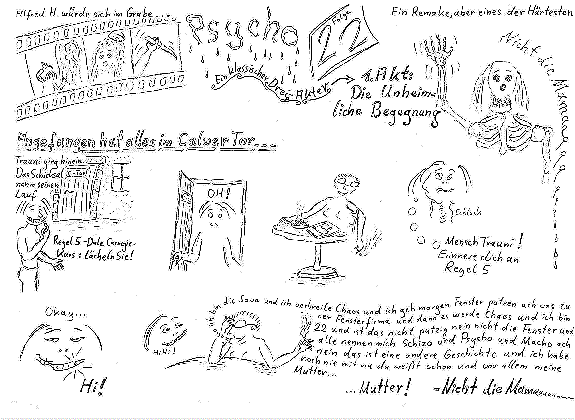 Alfred H. würde sich im Grabe...
Ein Remake, aber eines der Härtesten
Psycho
Folge
22
Ein klassischer Drei-Akter
1. Akt:
Die Unheim-
liche Begegnung
Nicht die Mamaaa
Angefangen hat alles im Calwer Tor...
Trauni ging hinein.
Das Schicksal
nahm seinen
Lauf
Regel 5 - Dale Carnegie-
Kurs: Lächeln Sie!
OH!
Schluck
Mensch Trauni!
Erinnere dich an
Regel 5
Okay...
Hi!
Hi Hi!
bin die Sova und ich verbreite Chaos und ich geh morgen Fenster putzen ach was zu
ner Fensterfirma und dann es werde Chaos und ich bin
22 und ist das nicht putzig nein nicht die Fenster und
alle nennen mich Schizo und Psycho und Macho ach
nein das ist eine andere Geschichte und ich habe
noch nie mit na du weißt schon und vor allem meine
Mutter...
...Mutter!
- Nicht die Mamaaa